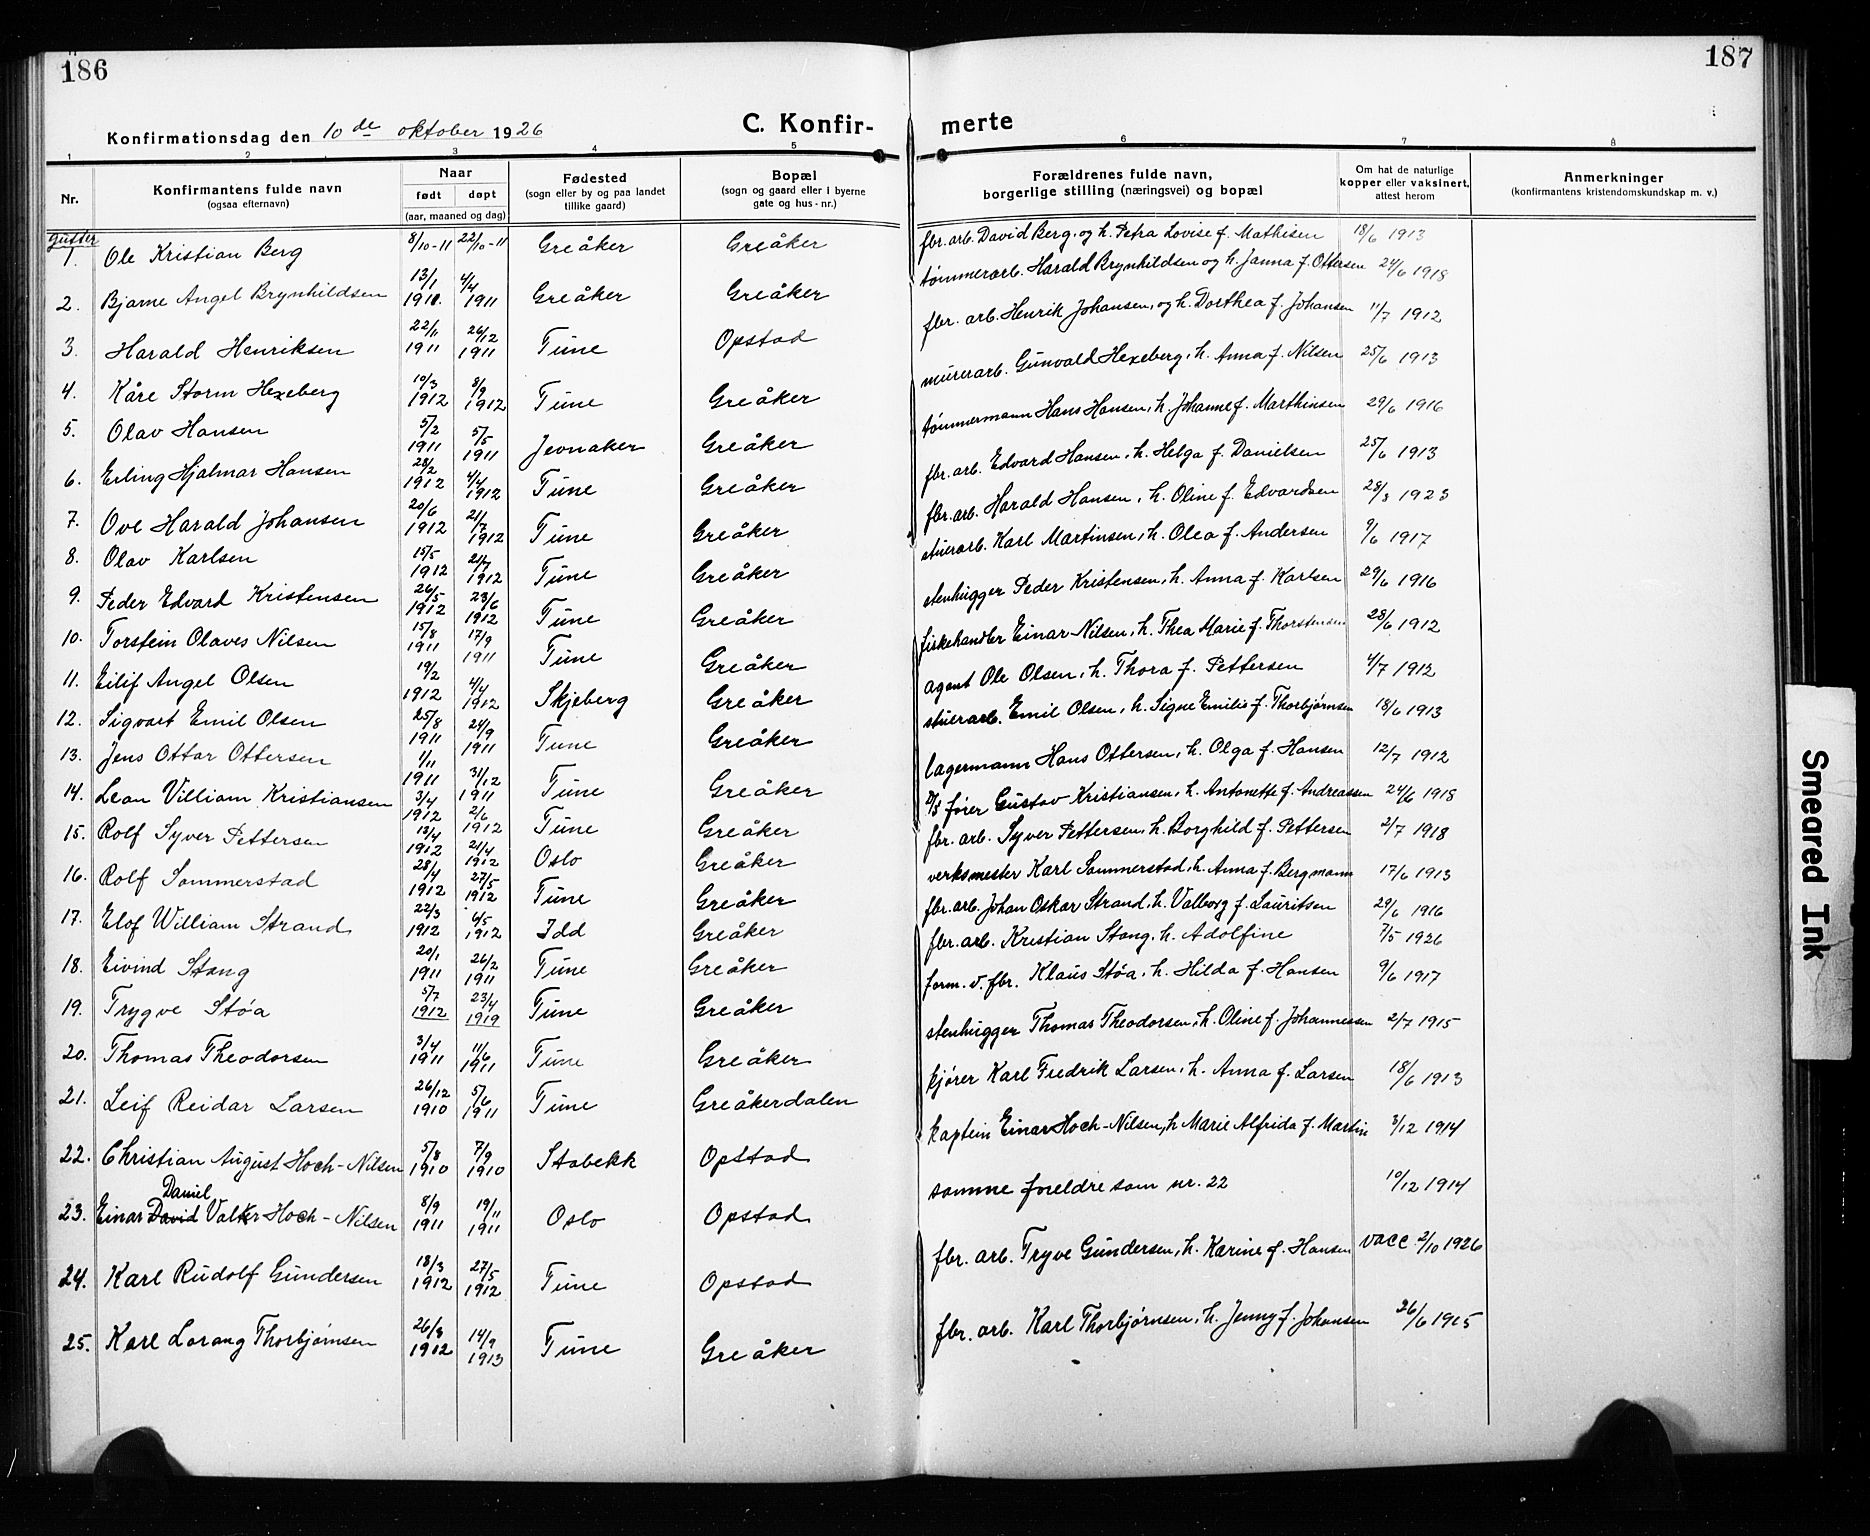 186
187
Konfirmationsdag den 10de oktober 1926
C. Konfir-
merte
1 2 3 4 5 6 7 8
Nr.
Konfirmantens fulde navn
(ogsaa efternavn)
Naar
født
døpt
(aar, maaned og dag)
Fødested
(sogn eller by og paa landet
tillike gaard)
Bopæl
(sogn og gaard eller i byerne
gate og hus-nr.)
Forældrenes fulde navn,
borgerlige stilling (næringsvei) og bopæl
Om hat de naturlige
kopper eller vaksinert,
attest herom
Anmerkninger
(konfirmantens kristendomskundskap m. v.)
Gutter
1. Ole Kristian Berg 8/10-11 22/10-11 Greåker Greåker fbr. arb. David Berg, og h. Petra Lovise f. Mathisen 18/6 1913
2. Bjarne Angel Brynhildsen 13/1 1911. 4/4 1911 Greåker Greåker tømmerarb. Harald Brynhildsen og h. Janna f. Ottersen 24/6 1918
3. Harald Henriksen 22/11 1911 26/12 1911 Tune Opstad fbr. arb. Henrik Johansen, og h. Dorthea f. Johansen 11/7 1912
4. Kåre Storm Hexeberg 10/3 1912 8/9 1912 Tune Greåker murerarb. Gunvald Hexeberg, h. Anna f. Nilsen 25/6 1913
5. Olav Hansen 5/2 1911 5/5 1911 Jevnaker Greåker tømmermann Hans Hansen, h. Johanne f. Marthinsen 29/6 1916
6. Erling Hjalmar Hansen 28/2 1912 4/4 1912 Tune Greåker fbr. arb. Edvard Hansen, h. Helga f. Danielsen 25/6 1913
7. Ove Harald Johansen 20/6 1912 21/7 1912 Tune Greåker fbr. arb. Harald Hansen, h. Oline f. Edvardsen 28/3 1923
8. Olav Karlsen 15/5 1912 21/7 1912 Tune Greåker stuerarb. Karl Martinsen, h. Olea f. Andersen 9/6 1917
9. Peder Edvard Kristensen 26/5 1912 23/6 1912 Tune Greåker stenhugger Peder Kristensen, h. Anna f. Karlsen 29/6 1916
10. Torstein Olaves Nilsen 15/8 1911 17/9 1911 Tune Greåker fiskehandler Einar Nilsen, h. Thea Marie f. Thorstensen 28/6 1912
11. Eilif Angel Olsen 19/2 1912 4/4 1912 Skjeberg Greåker agent Ole Olsen, h. Thora f. Pettersen 4/7 1912
12. Sigvart Emil Olsen 25/8 1911 24/9 1911 Tune Greåker stuerarb. Emil Olsen, h. Signe Emilie f. Thorbjørnsen 18/6 1913
13. Jens Ottar Ottersen 1/11 1911 31/12 1911 Tune Greåker lagermann Hans Ottersen, h. Olga f. Hansen 12/7 1912
14. Leon Villiam Kristiansen 3/4 1912 2/6 1912 Tune Greåker D/S fører Gustav Kristiansen, h. Antonette f. Andreassen 24/6 1918
15. Rolf Syver Pettersen 13/4 1912 21/4 1912 Oslo Greåker fbr. arb. Syver Pettersen, h. Borghild f. Pettersen 2/7 1918
16. Rolf Sommerstad 28/4 1912 27/5 1912 Tune Greåker verksmester Karl Sommerstad, h. Anna f. Bergmann 17/6 1913
17. Elof William Strand 22/3 1912 6/5 1912 Idd Greåker fbr. arb. Johan Oskar Strand, h. Valborg f. Lauritsen 29/6 1916
18. Eivind Stang 20/1 1911 26/2 1911 Tune Greåker fbr. arb. Kristian Stang, h. Adolfine 7/5 1926
19. Trygve Støa 5/7 1912 23/4 1919 Tune Greåker form. v. fbr. Klaus Støa, h. Hilda f. Hansen 9/6 1917
20. Thomas Theodorsen 3/4 1911 11/6 1911 Tune Greåker stenhugger Thomas Theodorsen, h. Oline f. Johannessen 2/7 1915
21. Leif Reidar Larsen 26/12 1910 5/6 1911 Tune Greåkerdalen kjører Karl Fredrik Larsen, h. Anna f. Larsen 18/6 1913
22. Christian August Hoch-Nilsen 5/8 1910 7/9 1910 Stabekk Opstad kaptein Einar Hoch-Nilsen, h Marie Alfrida f. Martin 3/12 1914
Daniel
23. Einar David Valker Hoch-Nilsen 8/9 1911 19/11 1911 Oslo Opstad samme foreldre som nr. 22 10/12 1914
24. Karl Rudolf Gundersen 18/3 1912 27/5 1912 Tune Opstad fbr. arb. Tryve Gundersen, h. Karine f. Hansen vacc. 2/10 1926
25. Karl Lorang Thorbjørnsen 26/8 1912 14/9 1913 Tune Greåker fbr. arb. Karl Thorbjørnsen, h. Jenny f. Johansen 26/6 1915
Smeared Ink